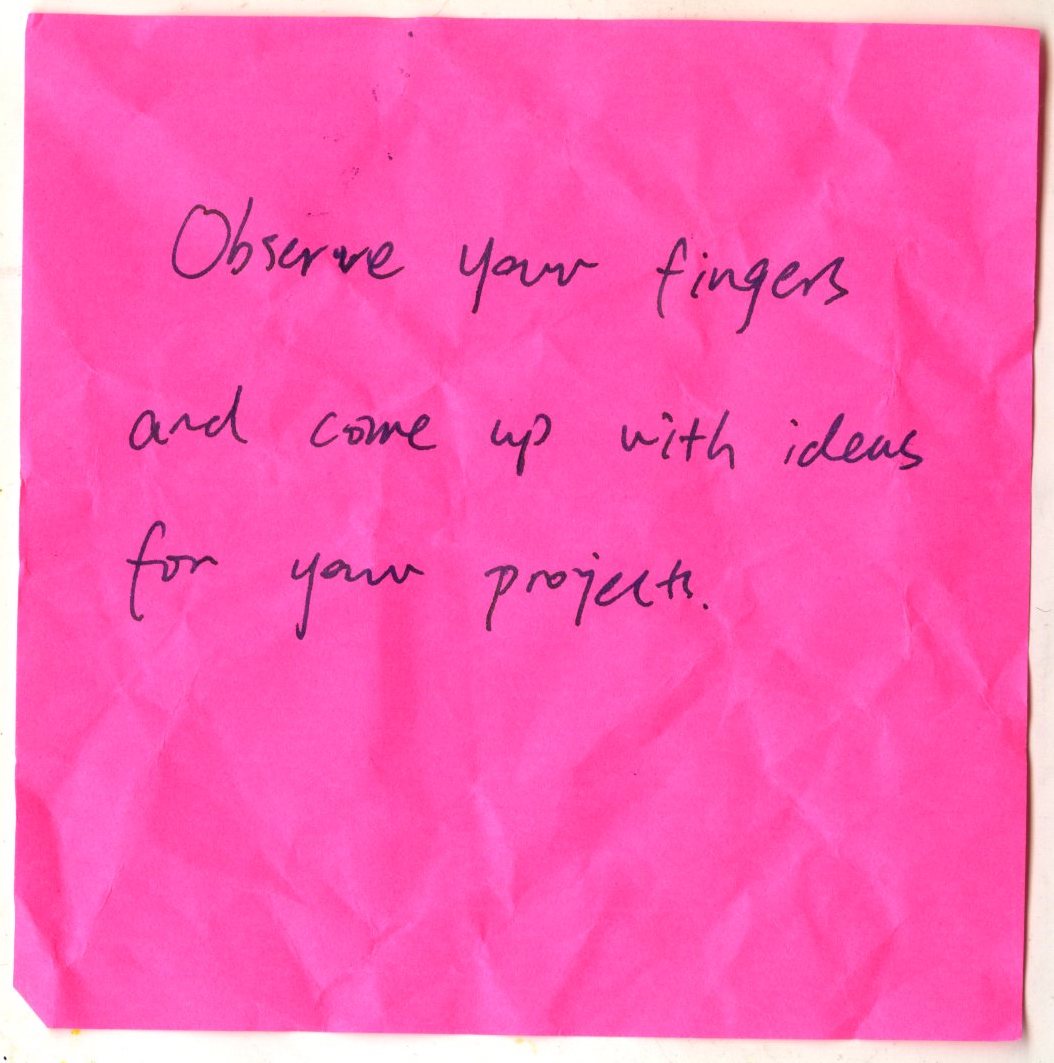 Observe your fingers
and come up with ideas
for your projects.